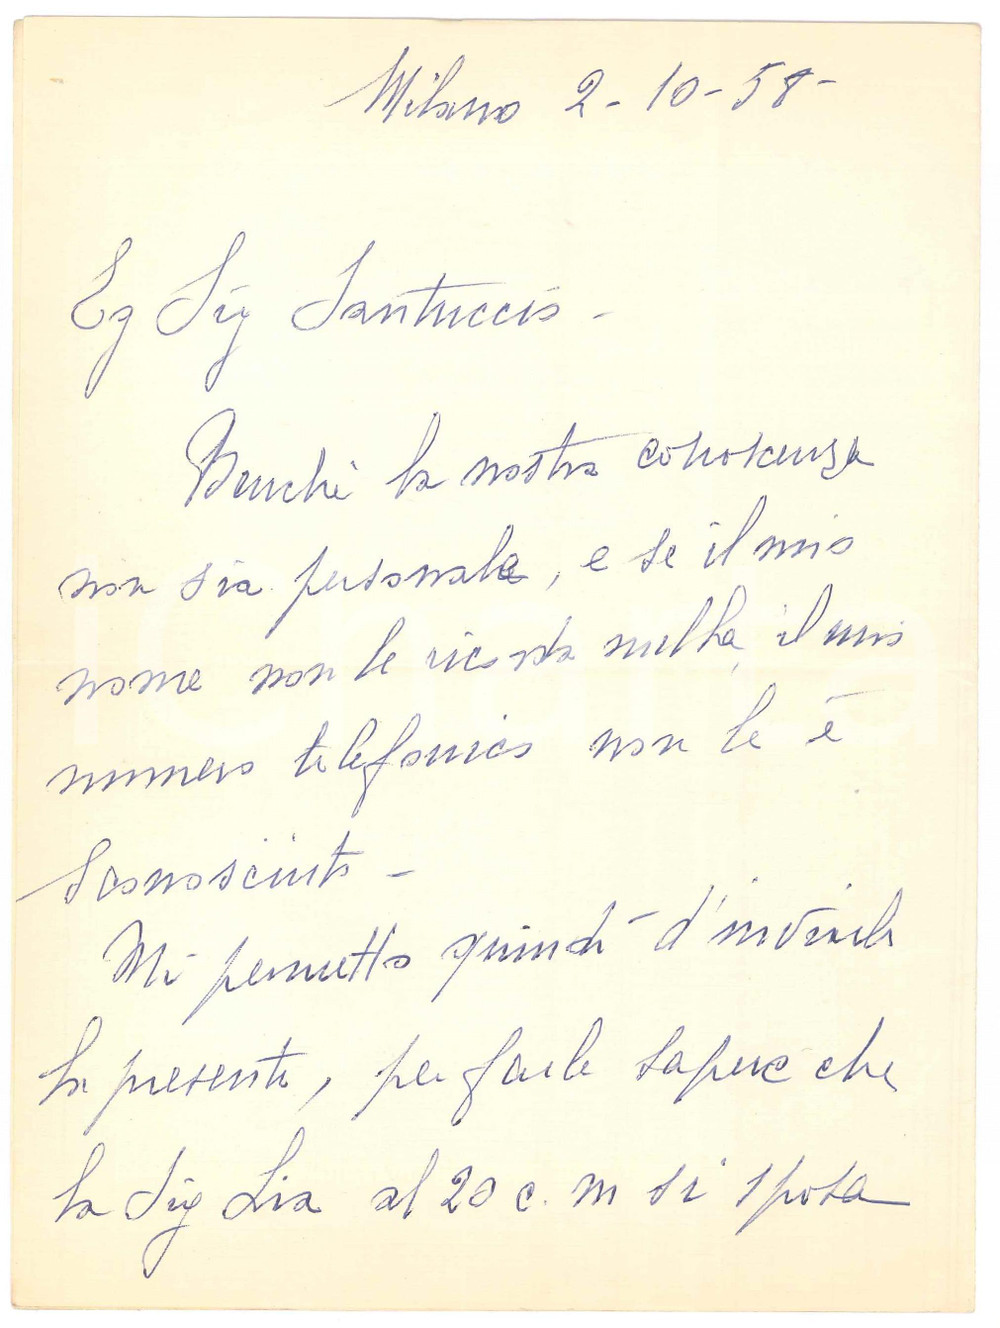 Milano 2-10-58-
Eg Sig Santucci -
Benchè la nostra conoscenza
non sia personale, e se il mio
nome non le ricorda nulla, il mio
numero telefonico non le è
sconosciuto -
Mi permetto quindi d'inviarle
la presente, per farle sapere che
la Sig Lia al 20 c. m si sposa